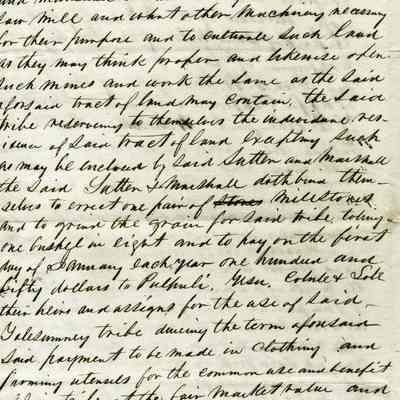 saw mill and what other machinery necessary
for their purpose and to cultivate such land
as they may think proper and likewise open
such mines and work the same as the said
aforsaid tract of land may contain, the said
tribe reserving to themselves the individual res-
idence of said tract of land excepting such
as may be enclosed by said Sutter and Marshall
the said Sutter & Marshall doth bind them-
selves to errect one pair of stones millstones
and to grind the grain for said tribe, toling
one bushel in eight and to pay on the first
day of January each year one hundred and
fifty dollars to Pulpuli, Gesu, Colule & Sole
their heirs and assigns for the use of said
Yalesumney tribe during the term aforesaid
said payment to be made in clothing and
farming utensels for the common use and benefit
tribe at the fair market value and